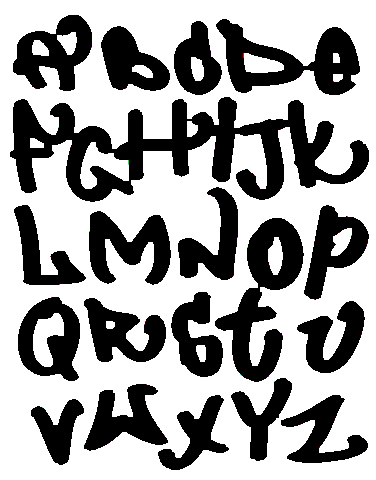 ABCDE
FGHIJK
LMNOP
QRStU
VWXYZ